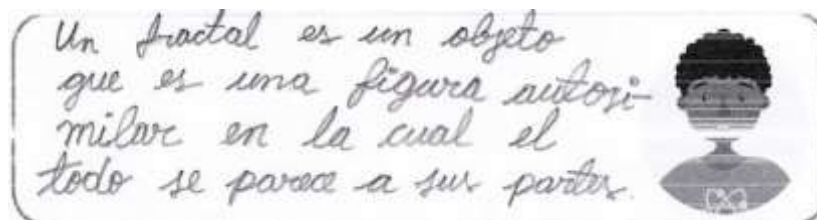 Un fractal es un objeto
que es una figura autosi-
milar en la cual el
todo se parece a sus partes.